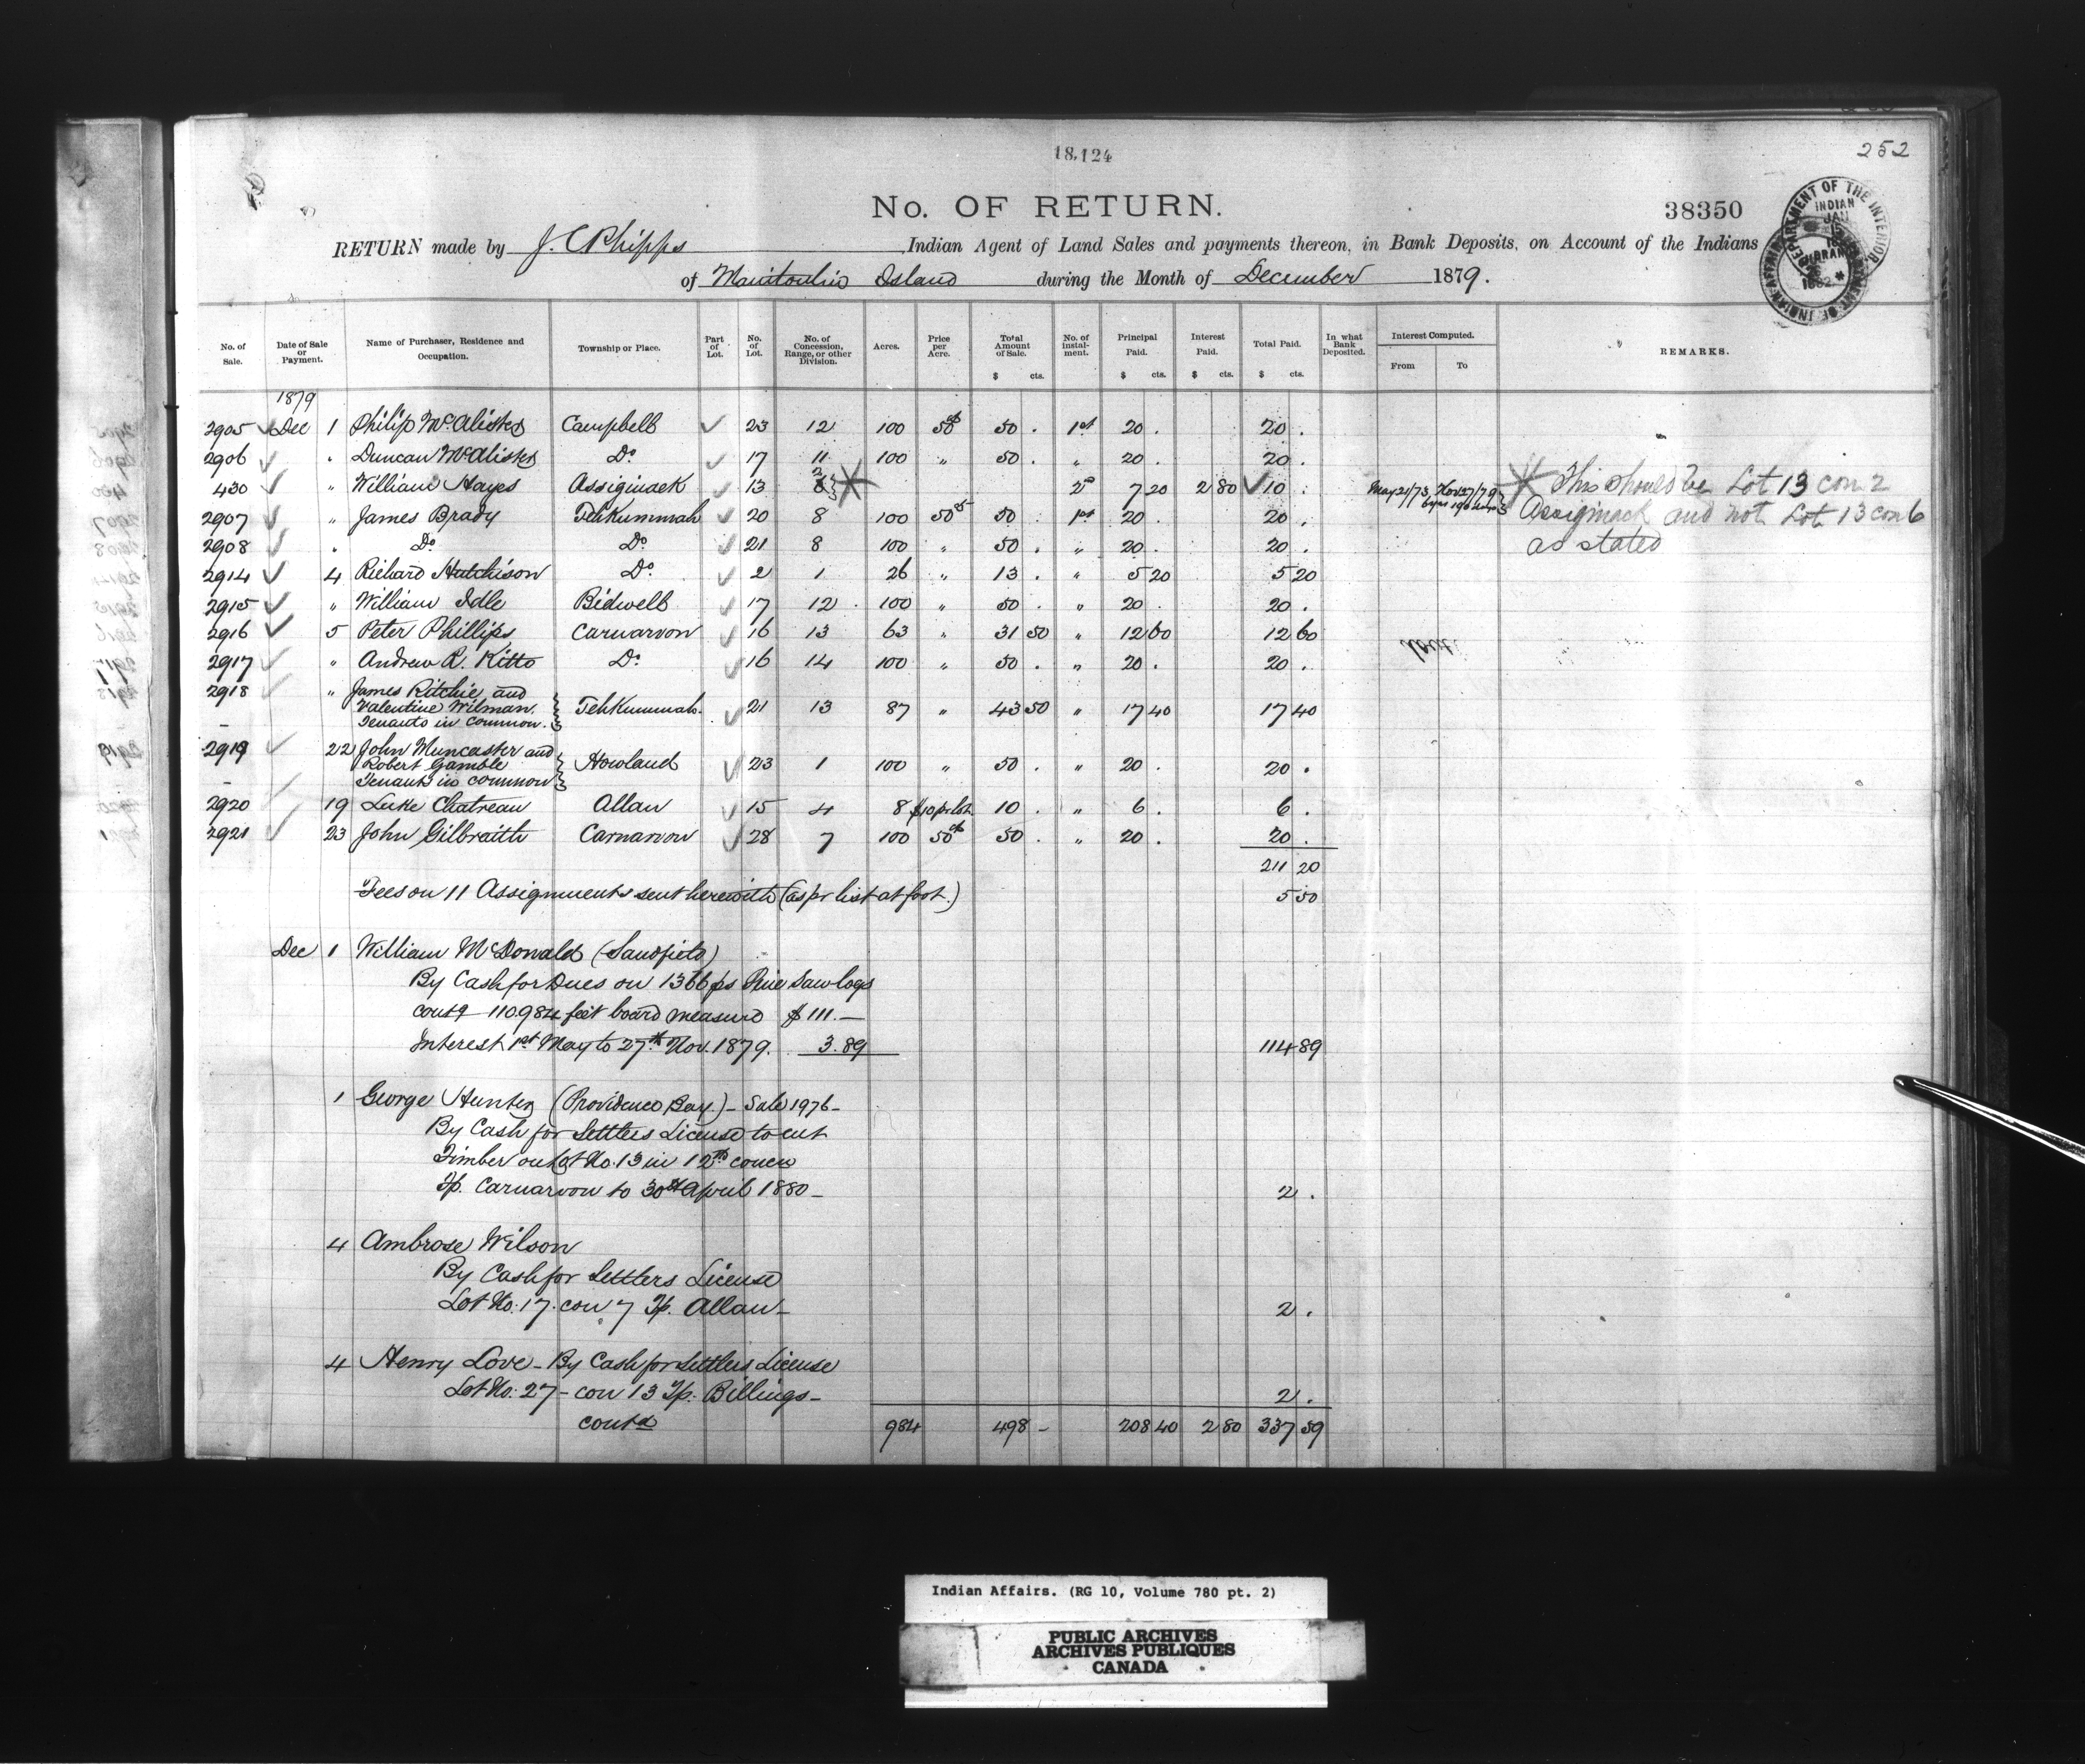 18,124
252
No. OF RETURN.
38350
RETURN made by J. C Phipps Indian Agent of Land Sales and payments thereon, in Bank Deposits, on Account of the Indians
of Manitoulin Island during the Month of December 1879.
DEPARTMENT OF THE INTERIOR INDIAN JAN
No. of Sale. Date of Sale or Payment. Name of Purchaser, Residence and Occupation. Township or Place. Part of Lot. No. of Lot. No. of Concession, Range, or other Division. Acres. Price per Acre. Total Amount of Sale. $ cts. No. of instalment. Principal Paid. $ cts. Interest Paid. $ cts. Total Paid. $ cts. In what Bank Deposited. Interest Computed. From To REMARKS.
1879
2905 Dec 1 Philip McAlister Campbell 23 12 100 50c 50 . 1st 20 . 20 .
2906 " Duncan McAlister Do 17 11 100 " 50 . " 20 . 20 .
430 " William Hayes Assiginack 13 2 6 2d 7 20 2 80 10 . May 21/73 Nov 27/79 * This should be Lot 13 con 2
2907 " James Brady Tehkummah 20 8 100 50c 50 . 1st 20 . 20 . Assiginack and not Lot 13 con 6
2908 " Do Do 21 8 100 " 50 . " 20 . 20 . as stated
2914 4 Richard Hutchison Do 2 1 26 " 13 . " 5 20 5 20
2915 " William Idle Bidwell 17 12 100 " 50 . " 20 . 20 .
2916 5 Peter Phillips Carnarvon 16 13 63 " 31 50 " 12 60 12 60
2917 " Andrew R. Kitto Do 16 14 100 " 50 . " 20 . 20 .
2918 " James Ritchie and
Valentine Wilman Tehkummah 21 13 87 " 43 50 " 17 40 17 40
Tenants in common.
2919 22 John Muncaster and
Robert Gamble Howland 23 1 100 " 50 . " 20 . 20 .
Tenants in common
2920 19 Luke Chatreau Allan 15 4 8 $10 pr lot 10 . " 6 . 6 .
2921 23 John Gilbraith Carnarvon 28 7 100 50c 50 . " 20 . 20 .
211 20
Fees on 11 Assignments sent herewith (as pr list at foot.) 5 50
Dec 1 William McDonald (Sandfield)
By Cash for Dues on 1366 ps Pine Saw logs
contg 110.984 feet board measure $ 111.—
Interest 1st May to 27th Nov. 1879. 3.89 114 89
1 George Hunter (Providence Bay.) - Sale 1976 -
By Cash for Settlers License to cut
Timber on Lot No. 13 in 12th concn
Tp. Carnarvon to 30th April 1880 - 2 .
4 Ambrose Wilson
By Cash for Settlers License
Lot No. 17. con 7 Tp. Allan - 2 .
4 Henry Love - By Cash for Settlers License
Lot No. 27 - con 13 Tp. Billings - 2 .
contd 984 498 - 208 40 2 80 337 59
Indian Affairs. (RG 10, Volume 780 pt. 2)
PUBLIC ARCHIVES
ARCHIVES PUBLIQUES
CANADA